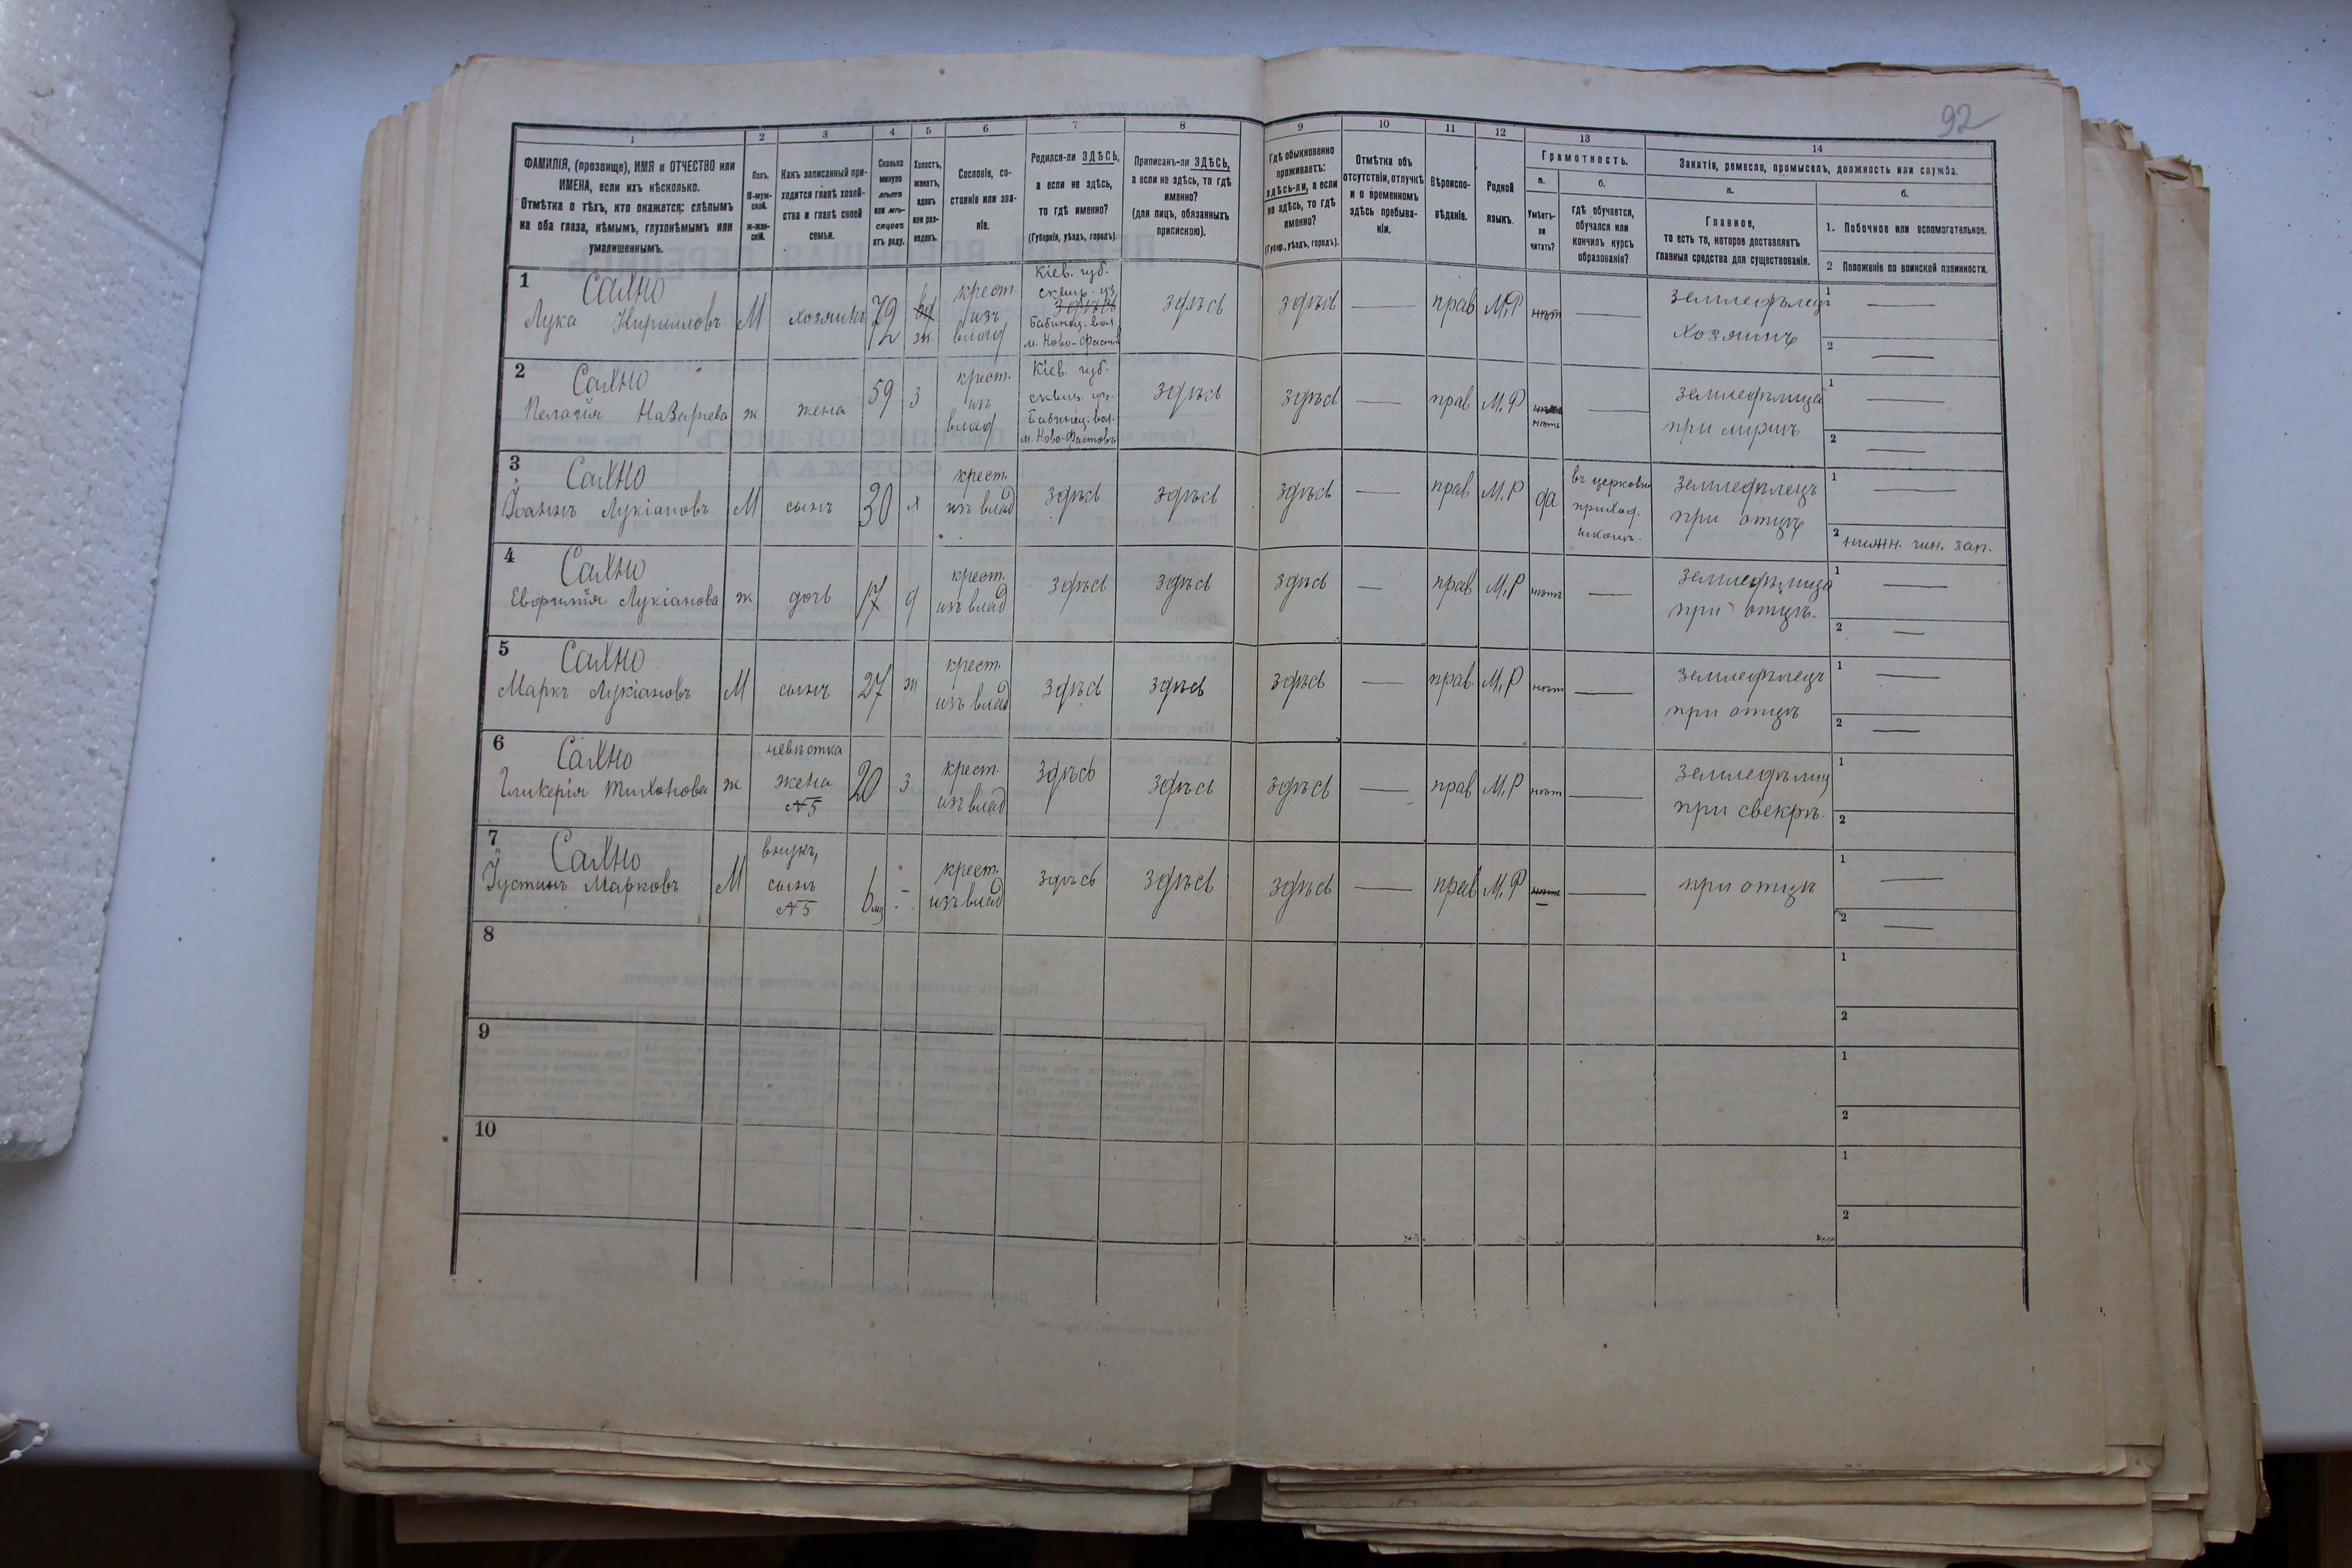 92
1
2
3
4
5
6
7
8
9
10
11
12
13
14
ФАМИЛІЯ, (прозвище), ИМЯ и ОТЧЕСТВО или
ИМЕНА, если ихъ нѣсколько.
Отмѣтка о тѣхъ, кто окажется: слѣпымъ
на оба глаза, нѣмымъ, глухонѣмымъ или
умалишеннымъ.
Полъ.
М-муж-
ской.
Ж-жен-
скій.
Какъ записанный при-
ходится главѣ хозяй-
ства и главѣ своей
семьи.
Сколько
минуло
лѣтъ
или мѣ-
сяцевъ
отъ роду.
Холостъ,
женатъ,
вдовъ
или раз-
веденъ.
Сословіе, со-
стояніе или зва-
ніе.
Родился-ли ЗДѢСЬ,
а если не здѣсь,
то гдѣ именно?
(Губернія, уѣздъ, городъ).
Приписанъ-ли ЗДѢСЬ,
а если не здѣсь, то гдѣ
именно?
(для лицъ, обязанныхъ
припискою).
Гдѣ обыкновенно
проживаетъ:
здѣсь-ли, а если
не здѣсь, то гдѣ
именно?
(Губер., уѣздъ, городъ).
Отмѣтка объ
отсутствіи, отлучкѣ
и о временномъ
здѣсь пребыва-
ніи.
Вѣроиспо-
вѣданіе.
Родной
языкъ.
Грамотность.
а.
Умѣетъ-
ли
читать?
б.
гдѣ обучается,
обучался или
кончилъ курсъ
образованія?
Занятіе, ремесло, промыселъ, должность или служба.
а.
Главное,
то есть то, которое доставляетъ
главныя средства для существованія.
б.
1. Побочное или вспомогательное.
2 Положеніе по воинской повинности.
1 Сахно
Лука Кирилловъ М хозяинъ 72 ж. крест. изъ влад
Кіев. губ.
сквир. уз
здѣсь
Бабинец. вол.
м. Ново-Фастов
здѣсь здѣсь — прав М.Р нѣт —
земледѣлец
хозяинъ
1 —
2 —
2 Сахно
Пелагія Назарьева ж жена 59 З крест. изъ влад
Кіев. губ.
сквир. уз.
Бабинец. вол.
м. Ново-Фастовъ
здѣсь здѣсь — прав М.Р нѣтъ —
земледѣлица
при мужѣ
1
2 —
3 Сахно
Іоаннъ Лукіановъ М сынъ 30 х крест. изъ влад здѣсь здѣсь здѣсь — прав М.Р да
въ церковно
приход.
школѣ.
земледѣлецъ
при отцѣ
1 —
2 нижн. чин. зап.
4 Сахно
Евфимія Лукіанова ж дочь 17 д крест. изъ влад здѣсь здѣсь здѣсь — прав М.Р нѣтъ —
земледѣлица
при отцѣ.
1 —
2 —
5 Сахно
Маркъ Лукіановъ М сынъ 27 ж крест. изъ влад здѣсь здѣсь здѣсь — прав. М.Р нѣт —
земледѣлецъ
при отцѣ
1 —
2 —
6 Сахно
Гликерія Тихонова ж
невѣстка
жена
№5
20 З крест. изъ влад здѣсь здѣсь здѣсь — прав М.Р нѣт —
земледѣлиц
при свекрѣ.
1
2
7 Сахно
Іустинъ Марковъ М
внукъ,
сынъ
№5
6 мц - крест. изъ влад здѣсь здѣсь здѣсь — прав М.Р нѣтъ —
при отцѣ
1 —
2 —
8
1
2
9
1
2
10
1
2